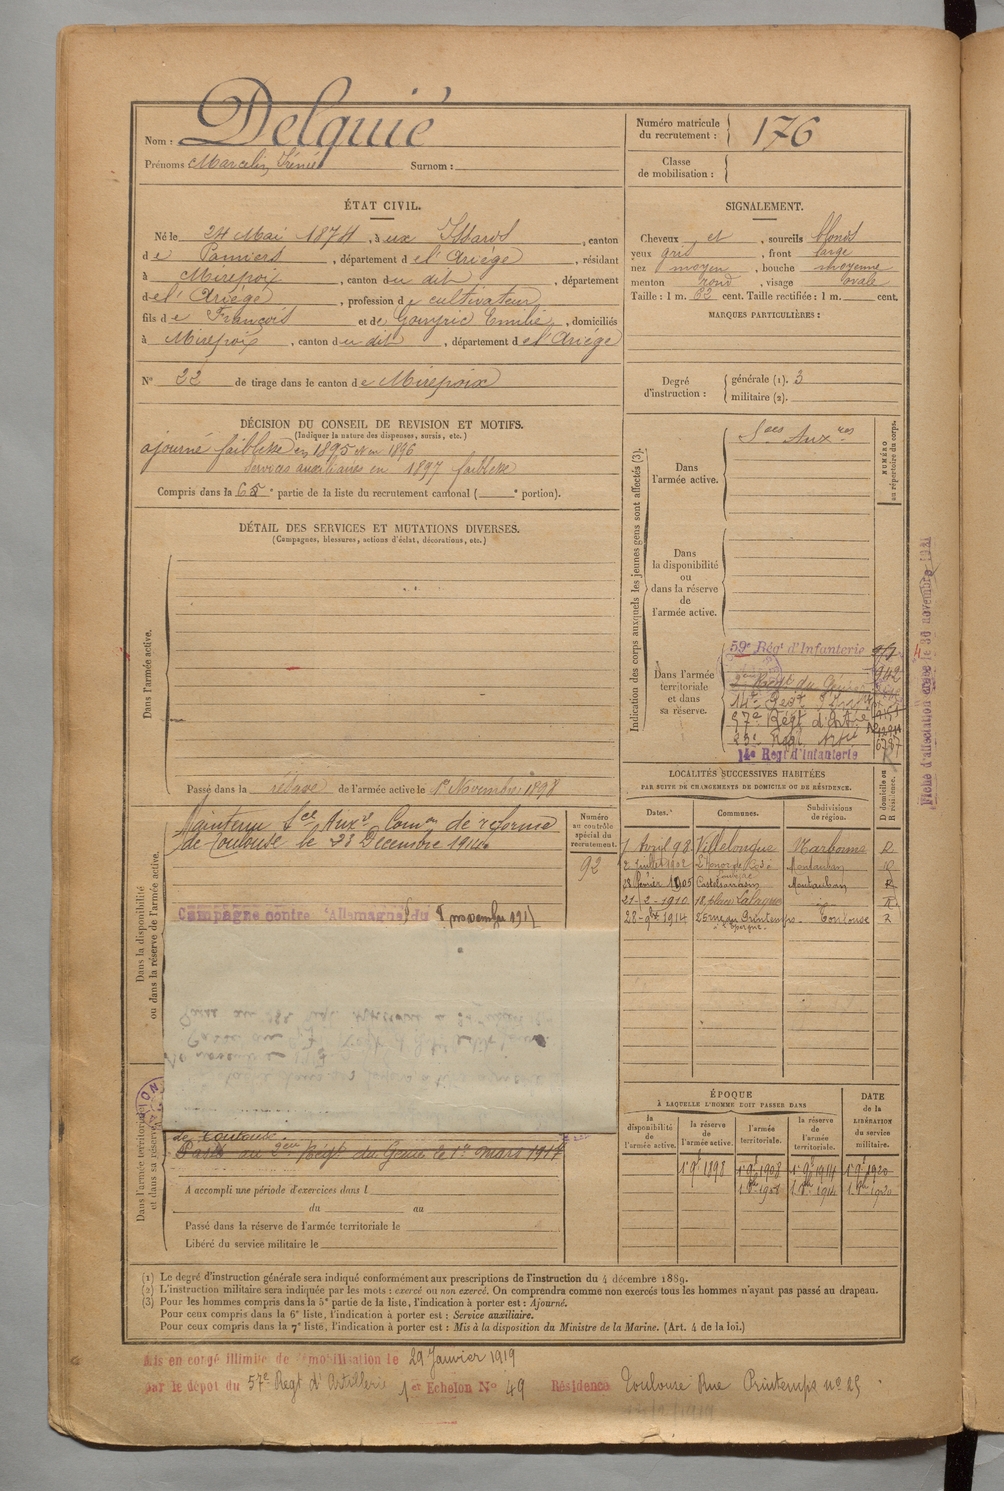 Nom : Delquié
Prénoms Marcelin, Irénée Surnom :
Numéro matricule du recrutement : 176
Classe de mobilisation :
ÉTAT CIVIL.
Né le 24 Mai 1874, à ux Issards, canton
de Pamiers, département de l'Ariège, résidant
à Mirepoix, canton du dit, département
de l'Ariège, profession de cultivateur
fils de François et de Gouzric Emilie, domiciliés
à Mirepoix, canton du dit, département de l'Ariège
N° 22 de tirage dans le canton de Mirepoix
SIGNALEMENT.
Cheveux et, sourcils blonds
yeux gris, front large
nez moyen, bouche moyenne
menton rond, visage ovale
Taille : 1 m. 62 cent. Taille rectifiée : 1 m. cent.
MARQUES PARTICULIÈRES :
Degré d'instruction : générale (1). 3
militaire (2).
DÉCISION DU CONSEIL DE REVISION ET MOTIFS.
(Indiquer la nature des dispenses, sursis, etc.)
ajourné faiblesse en 1895 et en 1896
Services auxiliaires en 1897 faiblesse
Compris dans la 6e partie de la liste du recrutement cantonal ( e portion).
DÉTAIL DES SERVICES ET MUTATIONS DIVERSES.
(Campagnes, blessures, actions d'éclat, décorations, etc.)
Dans l'armée active.
Passé dans la réserve de l'armée active le 1er Novembre 1898
Indication des corps auxquels les jeunes gens sont affectés (3).
NUMÉRO au répertoire du corps.
Dans l'armée active.
Sces Auxres
Dans la disponibilité ou dans la réserve de l'armée active.
Dans l'armée territoriale et dans sa réserve.
59e Rég t d'Infanterie
2eme Regt du Génie
57e Régt d'Artie
23e Regt Artie
14e Régt d'Infanterie
Fiche d'affectation créée le 30 novembre 1931
Dans la disponibilité ou dans la réserve de l'armée active.
Maintenu Sce Auxre Comon de réforme
de Toulouse le 23 Décembre 1914
Numéro au contrôle spécial du recrutement.
92
Campagne contre l'Allemagne du 8 novembre 1915
Dans l'armée territoriale et dans sa réserve.
de Toulouse
Passé au 2eme Régt du Génie le 1er mars 1917
A accompli une période d'exercices dans l
du au
Passé dans la réserve de l'armée territoriale le
Libéré du service militaire le
LOCALITÉS SUCCESSIVES HABITÉES
PAR SUITE DE CHANGEMENTS DE DOMICILE OU DE RÉSIDENCE.
Dates. Communes. Subdivisions de région. D domicile ou R résidence.
1 Avril 98 Villelongue Narbonne R
2 Juillet 1902 Montauban R
28 février 1905 Castelsarrasin Montauban R
21-2-1910 R
28-9bre 1914 25 rue du Printemps Toulouse R
ÉPOQUE
A LAQUELLE L'HOMME DOIT PASSER DANS
la disponibilité de l'armée active. la réserve de l'armée active. l'armée territoriale. la réserve de l'armée territoriale. DATE de la LIBÉRATION du service militaire.
1er 9bre 1898 1er 9bre 1908 1er 9bre 1914 1er 9bre 1920
(1) Le degré d'instruction générale sera indiqué conformément aux prescriptions de l'instruction du 4 décembre 1889.
(2) L'instruction militaire sera indiquée par les mots : exercé ou non exercé. On comprendra comme non exercés tous les hommes n'ayant pas passé au drapeau.
(3) Pour les hommes compris dans la 5e partie de la liste, l'indication à porter est : Ajourné.
Pour ceux compris dans la 6e liste, l'indication à porter est : Service auxiliaire.
Pour ceux compris dans la 7e liste, l'indication à porter est : Mis à la disposition du Ministre de la Marine. (Art. 4 de la loi.)
Mis en congé illimité de démobilisation le 29 Janvier 1919
par le dépôt du 57e Regt d'Artillerie 1er Echelon N° 49 Résidence Toulouse Rue Printemps n° 25